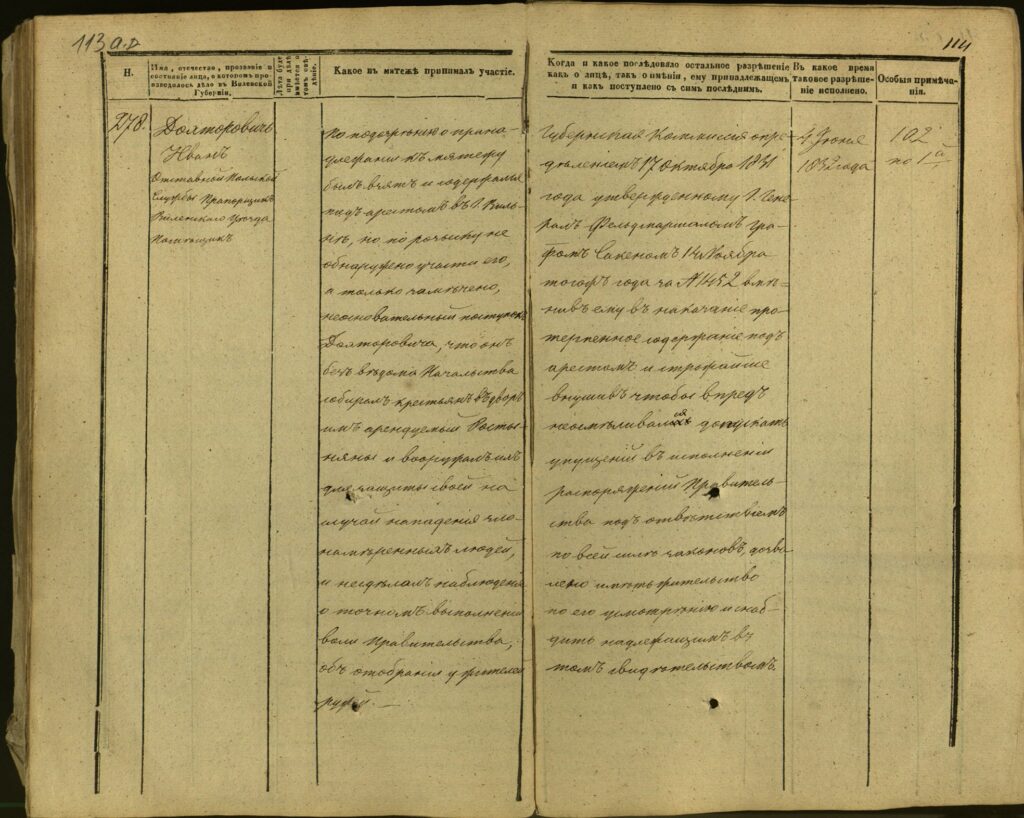 113 а.д
114
Н.
Имя, отечество, прозваніе и
состояніе лица, о которомъ про-
изводилось дѣло въ Виленской
Губерніи.
Какое въ мятежѣ принималъ участіе.
Когда и какое послѣдовало остальное разрѣшеніе
какъ о лицѣ, такъ о имѣніи, ему принадлежащемъ
и какъ поступлено съ симъ послѣднимъ.
Въ какое время
таковое разрѣше-
ніе исполнено.
Особыя примѣча-
нія.
278.
Дояторовичъ
Иванъ
Отставной Польской
Службы Прапорщикъ
Виленскаго Уѣзда
Помѣщикъ
По подозрѣнію о прина-
длежаніи къ мятежу
былъ взятъ и содержался
подъ арестомъ въ г. Виль-
нѣ, но по розыску не
обнаружено участія его,
а только замѣчено,
неосновательный поступокъ
Дояторовича, что онъ
безъ вѣдома Начальства
собиралъ крестьянъ въ дворъ
имъ арендуемый Росты-
няны и вооружалъ ихъ
для защиты своей на
случай нападенія зло-
намѣренныхъ людей,
и несдѣлалъ наблюденія
о точномъ выполненіи
воли Правительства,
объ отобраніи у жителей
ружей. —
Губернская Коммиссія опре-
дѣленіемъ 17 Октября 1831
года утвержденному Г. Гене-
ралъ Фельдмаршаломъ Гра-
фомъ Сакеномъ 14 Ноября
тогожъ года за № 1452 вмѣ-
нивъ ему въ наказаніе про-
терпенное содержаніе подъ
арестомъ и строжайше
внушивъ чтобы впредъ
неосмѣливался допускать
упущеній въ исполненіи
распоряженій Правитель-
ства подъ отвѣтствіемъ
по всей силѣ законовъ, дозво-
лено имѣть жительство
по его усмотрѣнію и снаб-
дить надлежащимъ въ
томъ свидѣтельствомъ.
9 Іюня
1832 года
102
по 1й